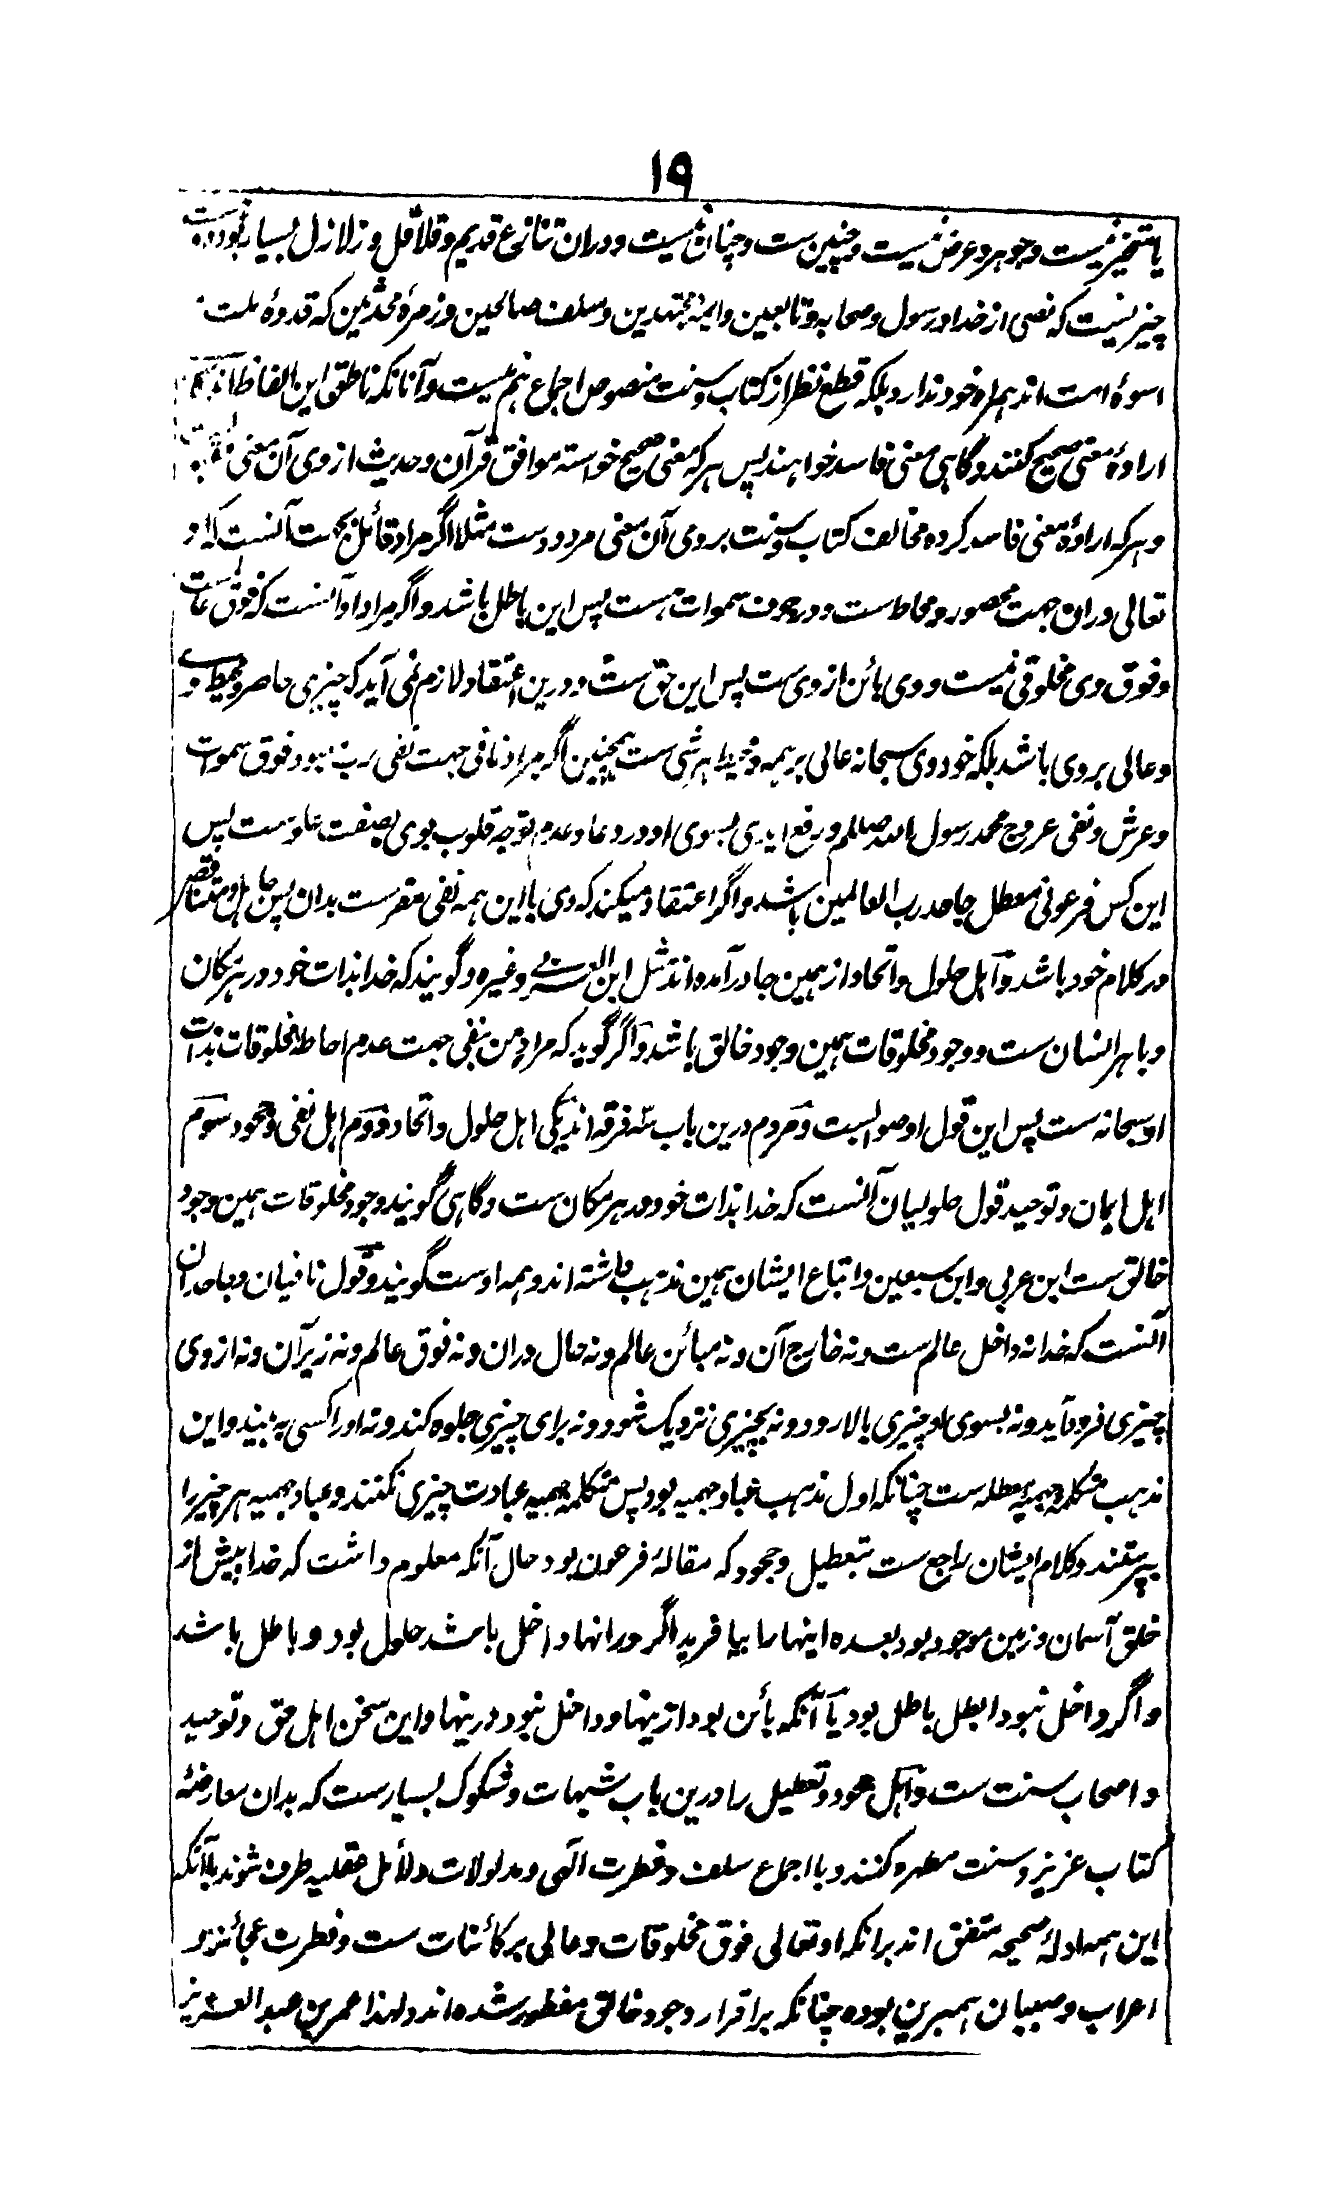 ۱۹
یا متحیز نیست و جوهر و عرض نیست و چنین ست و چنان نیست و دران تنازع قدیم و قلاقل و زلازل بسیار بوده ست
چیزیست که نصی از خدا و رسول و صحابه و تابعین و ائمهٔ مجتهدین و سلف صالحین و زمرهٔ محدثین که قدوهٔ ملت
اسوهٔ امت اند همراه خود ندارد بلکه قطع نظر از کتاب و سنت منصوص اجماع هم نیست و آنانکه ناطق این الفاظ اند
ارادهٔ معنی صحیح کنند و گاهی معنی فاسد خواهند پس هر که معنی صحیح خواسته موافق قرآن و حدیث از وی آن معنی
و هر که ارادهٔ معنی فاسد کرده مخالف کتاب و سنت بروی آن معنی مردودست مثلا اگر مراد قائل بجهت آنست که او
تعالی دران جهت محصور و محاط ست و در جوف سموات ست پس این باطل باشد و اگر مراد او آنست که فوق
و فوق وی مخلوقی نیست و وی بائن از وی ست پس این حق ست و درین اعتقاد لازم نمی آید که چیزی حاصر و محیط وی
و عالی بروی باشد بلکه خود وی سبحانه عالی بر همه و محیط هر شی ست همچنین اگر مراد نافی جهت نفی رب معبود فوق سموات
و عرش و نفی عروج محمد رسول الله صللم و رفع ایدی بسوی او در دعا و عدم توجه قلوب بوی بصفت علوست پس
این کس فرعونی معطل جاحد رب العالمین باشد و اگر اعتقاد میکند که وی با این همه نفی مقرست بدان پس جاهل و متناقض
در کلام خود باشد و اهل حلول و اتحاد از همین جا در آمده اند مثل ابن العربی و غیره و گویند که خدا بذات خود در هر مکان
و با هر انسان ست و وجود مخلوقات همین وجود خالق باشد و اگر گوید که مراد من بنفی جهت عدم احاطهٔ مخلوقات بذات
او سبحانه ست پس این قول او صوابست و مردم درین باب سه فرقه اند یکی اهل حلول و اتحاد دوم اهل نفی و جحود سوم
اهل ایمان و توحید قول حلولیان آنست که خدا بذات خود در هر مکان ست و گاهی گویند وجود مخلوقات همین وجود
خالق ست ابن عربی و ابن سبعین و اتباع ایشان همین مذهب داشته اند و همه اوست گویند و قول نافیان و جاحدان
آنست که خدا نه داخل عالم ست و نه خارج آن و نه مبائن عالم و نه حال دران و نه فوق عالم و نه زیر آن و نه از وی
چیزی فرود آید و نه بسوی او چیزی بالا رود و نه بچیزی نزدیک شود و نه برای چیزی جلوه کند و نه او را کسی به بیند و این
مذهب متکلمهٔ جهمیه معطله ست چنانکه اول مذهب عباد جهمیه بود پس متکلمه جهمیه عبادت چیزی نکنند و عباد جهمیه هر چیز را
بپرستند و کلام ایشان راجع ست بتعطیل و جحود که مقالهٔ فرعون بود حال آنکه معلوم داشت که خدا پیش از
خلق آسمان و زمین موجود بود بعده اینها را بیافرید اگر در انها داخل باشد حلول بود و باطل باشد
و اگر داخل نبود ابطل باطل بود یا آنکه بائن بود ازینها و داخل نبود درینها و این سخن اهل حق و توحید
و اصحاب سنت ست و اهل جحود و تعطیل را درین باب شبهات و شکوک بسیارست که بدان معارضهٔ
کتاب عزیز و سنت مطهره کنند و با اجماع سلف و فطرت الهی و مدلولات دلائل عقلیه طرف شوند بلا آنکه
این همه ادلهٔ صحیحه متفق اند برانکه او تعالی فوق مخلوقات و عالی بر کائنات ست و فطرت عجائز و
اعراب و صبیان همبرین بوده چنانکه بر اقرار وجود خالق مفطور شده اند و لهذا عمر بن عبد العزیز